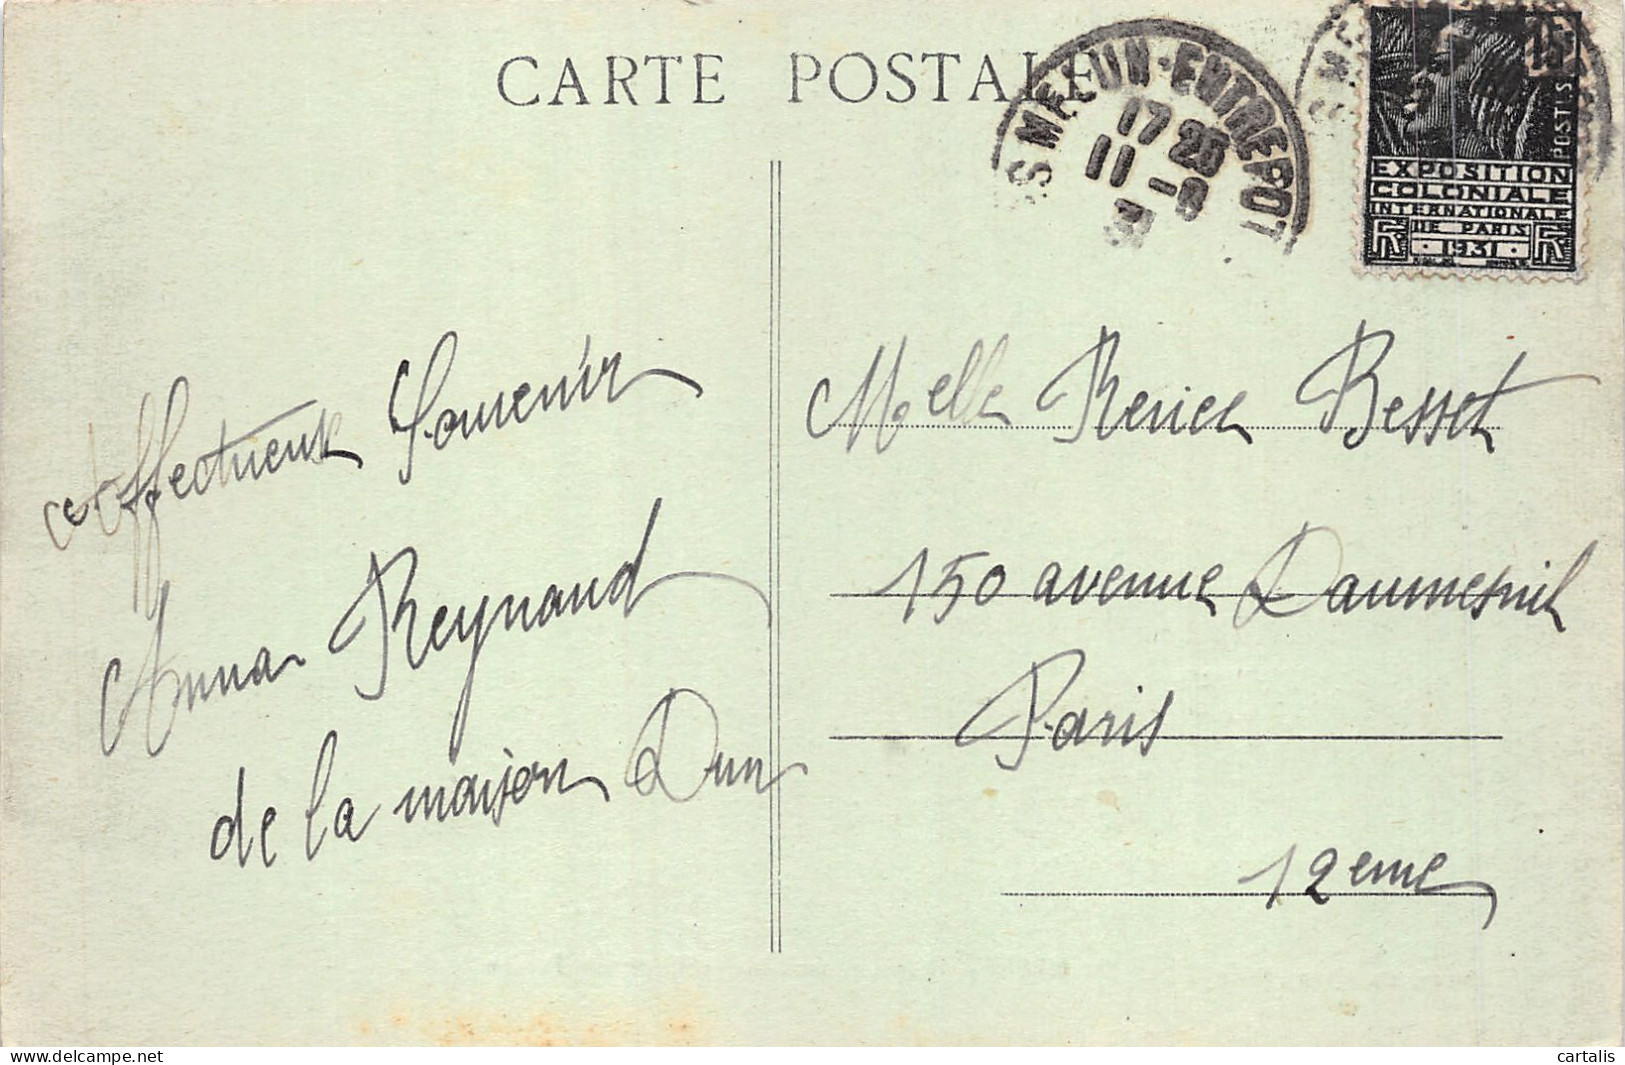 CARTE POSTALE
MELUN-ENTREPOT
17 25
11 -8
31
15c
POSTES
EXPOSITION
COLONIALE
INTERNATIONALE
DE PARIS
RF · 1931 · RF
Affectueux Souvenir
Anna Reynaud
de la maison Dun
Melle Renée Besset
150 avenue Daumesnil
Paris
12eme
www.delcampe.net
cartalis